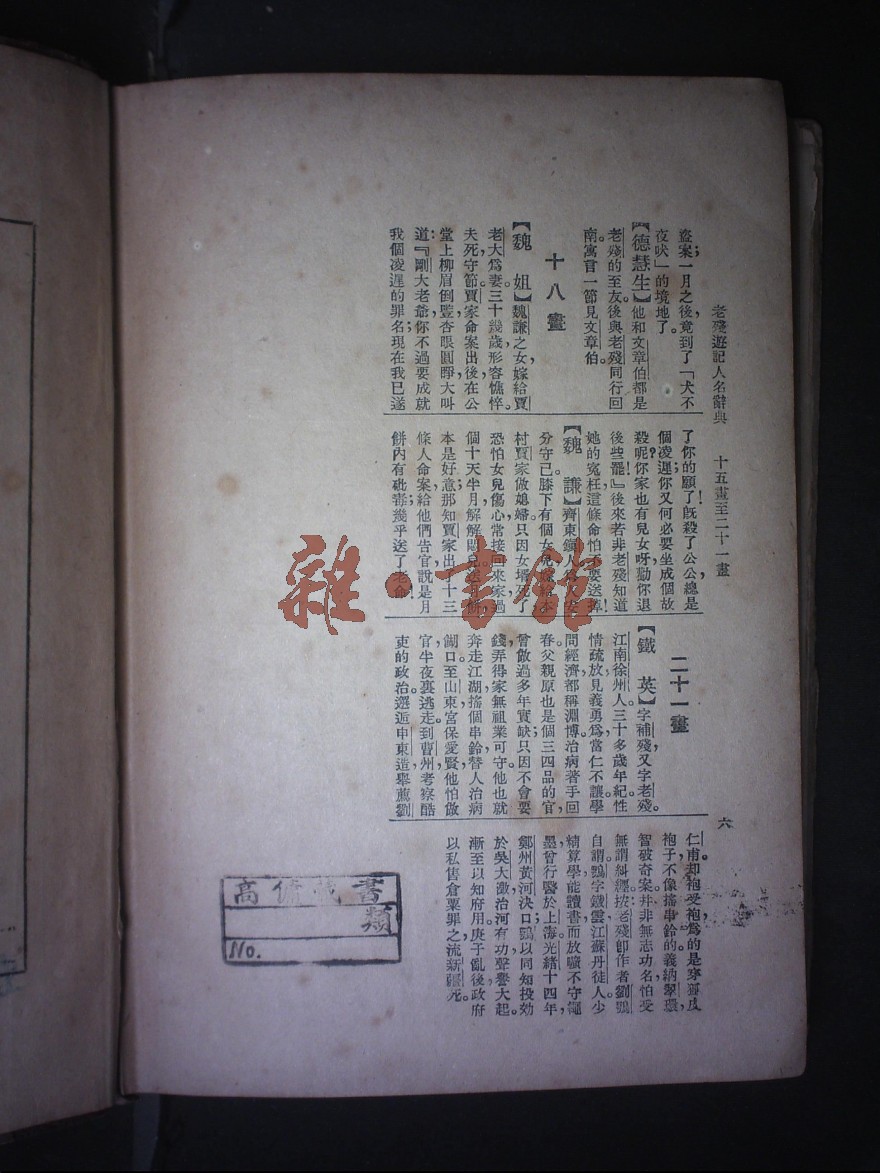 老殘遊記人名辭典　十五畫至二十一畫　六
盜案；一月之後，竟到了「犬不
夜吠」的境地了。
【德慧生】他和文章伯都是
老殘的至友。後與老殘同行回
南。寓言一節見文章伯。
十八畫
【魏　姐】魏謙之女，嫁給賈
老大爲妻。三十幾歲，形容憔悴。
夫死守節。賈家命案出後，在公
堂上柳眉倒豎，杏眼圓睜，大叫
道：『剛大老爺！你不過要成就
我個凌遲的罪名；現在我已遂
了你的願了！旣殺了公公，總是
個凌遲，你又何必要坐成個故
殺呢？你家也有兒女呀！勸你退
後些罷！』後來若非老殘知道
她的寃枉，這條命怕不要送掉！
【魏　謙】齊東鎭人。
分守己。膝下有個女兒，
村賈家做媳婦。只因女壻死了，
恐怕女兒傷心，常接回來家過
個十天半月，解解悶兒。送月餅，
本是好意；那知賈家出了十三
條人命案，給他們告官，說是月
餅內有砒毒；幾乎送了老命！
二十一畫
【鐵　英】字補殘，又字老殘。
江南徐州人。三十多歲年紀，性
情疏放，見義勇爲，當仁不讓。學
問經濟，都稱淵博。治病著手回
春。父親原也是個三四品的官，
曾做過多年實缺；只因不會要
錢，弄得家無祖業可守。他也就
奔走江湖，搖個串鈴，替人治病
餬口。至山東，宮保愛賢，他怕做
官，半夜裏逃走。到曹州，考察酷
吏的政治。邂逅申東造，舉薦劉
仁甫。却袍受袍，爲的是穿狐皮
袍子，不像搖串鈴的；義納翠環，
智破奇案，井非無志功名，怕受
無謂糾纏。按：老殘卽作者劉鶚
自謂。鶚字鐵雲，江蘇丹徒人。少
精算學，能讀書，而放曠不守繩
墨。曾行醫於上海。光緒十四年，
鄭州黃河決口，鶚以同知投効
於吳大澂，治河有功，聲譽大起。
漸至以知府用。庚子亂後，政府
以私售倉粟罪之，流新疆死。
高　　　書
類
No.
雜·書館